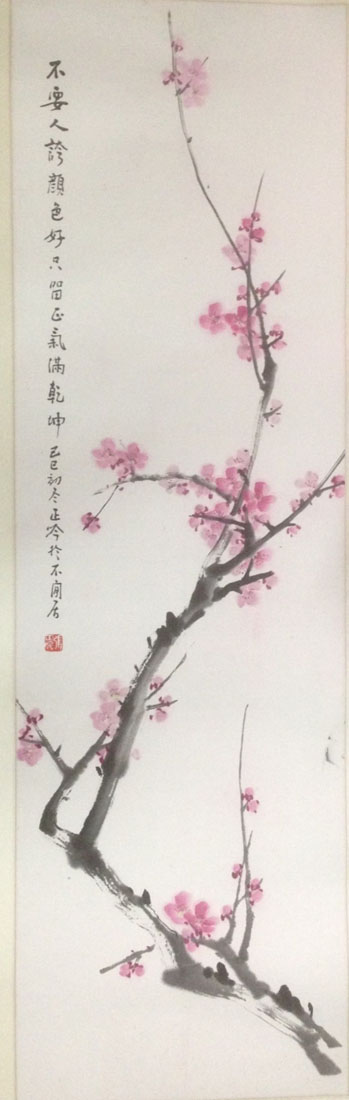 不要人誇顏色好只留正氣滿乾坤己巳初冬正吟於不閒居